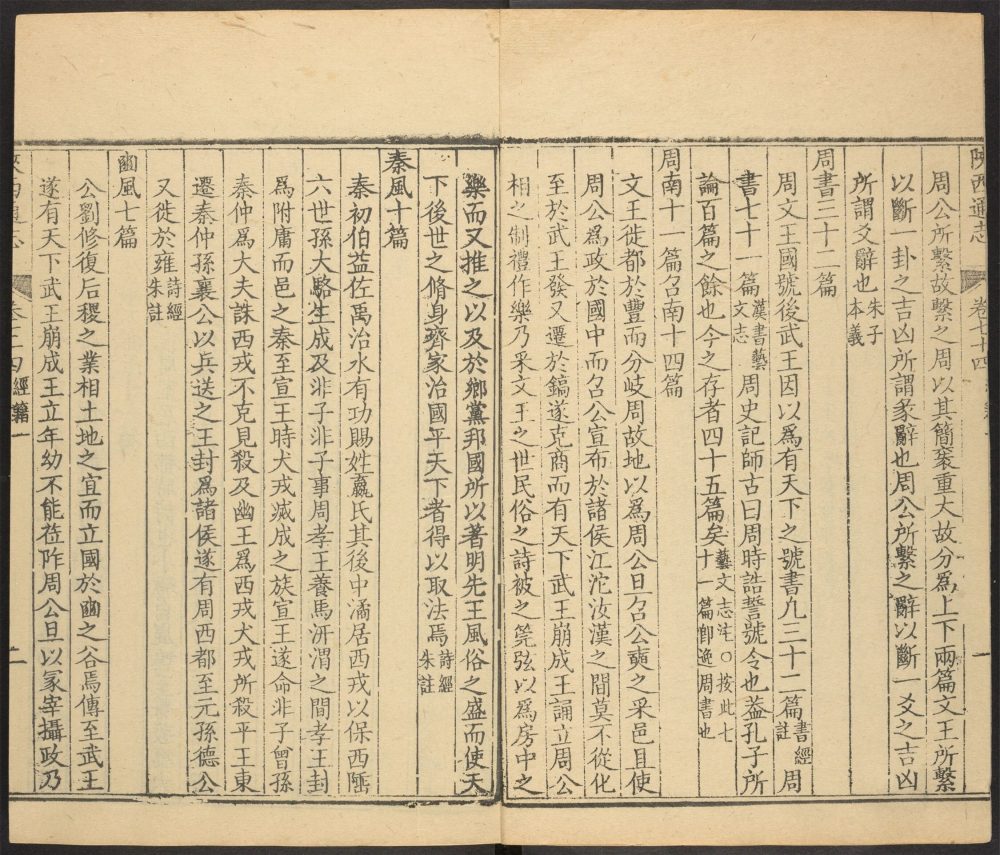 陝西通志
卷七十四
一
周公所繫故繫之周以其簡袠重大故分爲上下兩篇文王所繫
以斷一卦之吉凶所謂彖辭也周公所繫之辭以斷一爻之吉凶
所謂爻辭也朱子本義
周書三十二篇
周文王國號後武王因以爲有天下之號書凡三十二篇書經註周
書七十一篇漢書藝文志周史記師古曰周時誥誓號令也葢孔子所
論百篇之餘也今之存者四十五篇矣藝文志注○按此七十一篇卽逸周書也
周南十一篇召南十四篇
文王徙都於豐而分岐周故地以爲周公旦召公奭之采邑且使
周公爲政於國中而召公宣布於諸侯江沱汝漢之間莫不從化
至於武王發又遷於鎬遂克商而有天下武王崩成王誦立周公
相之制禮作樂乃采文王之世民俗之詩被之筦弦以爲房中之
樂而又推之以及於鄉黨邦國所以著明先王風俗之盛而使天
下後世之脩身齊家治國平天下者得以取法焉詩經朱註
秦風十篇
秦初伯益佐禹治水有功賜姓嬴氏其後中潏居西戎以保西陲
六世孫大駱生成及非子非子事周孝王養馬汧渭之間孝王封
爲附庸而邑之秦至宣王時犬戎滅成之族宣王遂命非子曾孫
秦仲爲大夫誅西戎不克見殺及幽王爲西戎犬戎所殺平王東
遷秦仲孫襄公以兵送之王封爲諸侯遂有周西都至元孫德公
又徙於雍詩經朱註
豳風七篇
公劉修復后稷之業相土地之宜而立國於豳之谷焉傳至武王
遂有天下武王崩成王立年幼不能莅阼周公旦以冢宰攝政乃
經籍一
二